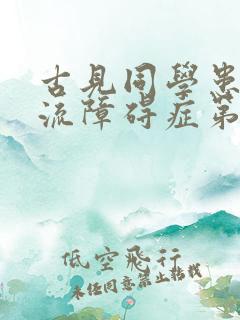 古見同學患
流障碍症第
低空飛行
未经同意禁止转载